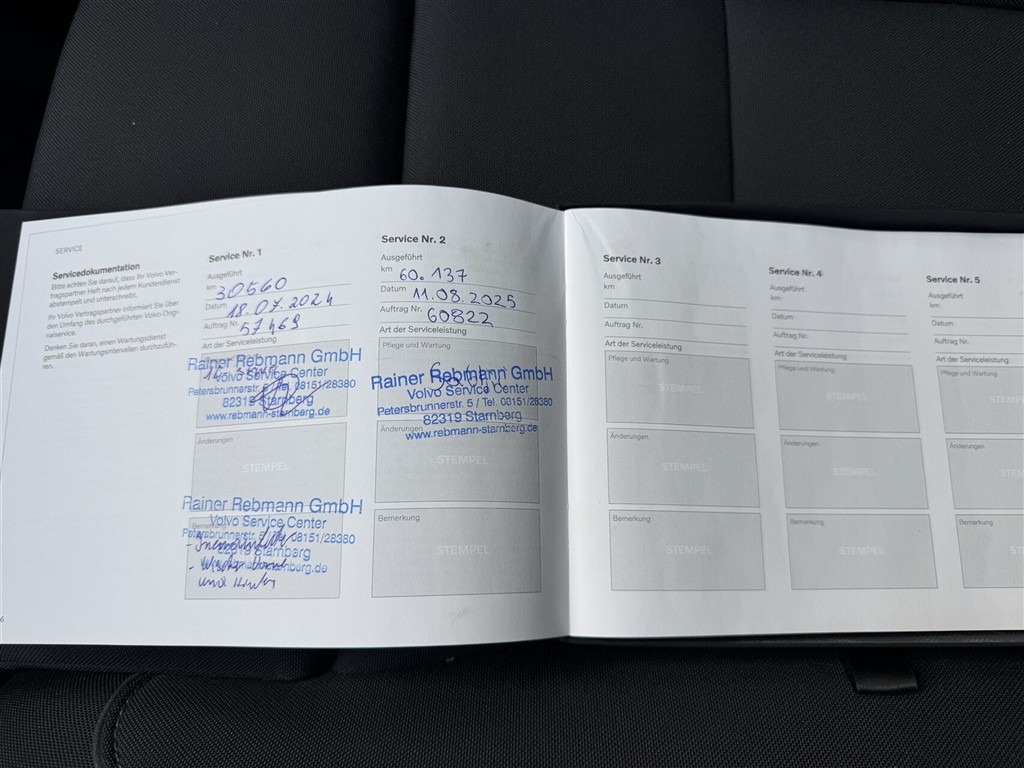 SERVICE
Servicedokumentation
Bitte achten Sie darauf, dass Ihr Volvo Ver-
tragspartner Heft nach jedem Kundendienst
abstempelt und unterschreibt.
Ihr Volvo Vertragspartner informiert Sie über
den Umfang des durchgeführten Volvo Origi-
nalservice.
Denken Sie daran, einen Wartungsdienst
gemäß den Wartungsintervallen durchzufüh-
ren.
6
Service Nr. 1
Ausgeführt
km 30560
Datum 18.07.2024
Auftrag Nr. 57469
Art der Serviceleistung
Rainer Rebmann GmbH
Volvo Service Center
Petersbrunnerstr. 5 / Tel. 08151/28380
82319 Starnberg
www.rebmann-starnberg.de
Änderung
STEMPEL
Rainer Rebmann GmbH
Volvo Service Center
Petersbrunnerstr. 5 / Tel. 08151/28380
82319 Starnberg
Service Nr. 2
Ausgeführt
km 60.137
Datum 11.08.2025
Auftrag Nr. 60822
Art der Serviceleistung
Pflege und Wartung
Rainer Rebmann GmbH
Volvo Service Center
Petersbrunnerstr. 5 / Tel. 08151/28380
82319 Starnberg
www.rebmann-starnberg.de
Änderungen
STEMPEL
Bemerkung
STEMPEL
Service Nr. 3
Ausgeführt
km
Datum
Auftrag Nr.
Art der Serviceleistung
Pflege und Wartung
STEMPEL
Änderungen
STEMPEL
Bemerkung
STEMPEL
Service Nr. 4
Ausgeführt
km
Datum
Auftrag Nr.
Art der Serviceleistung
Pflege und Wartung
STEMPEL
Änderungen
STEMPEL
Bemerkung
STEMPEL
Service Nr. 5
Ausgeführt
km
Datum
Auftrag Nr.
Art der Serviceleistung
Pflege und Wartung
STEM
Änderungen
STEM
Bemerkung
STE